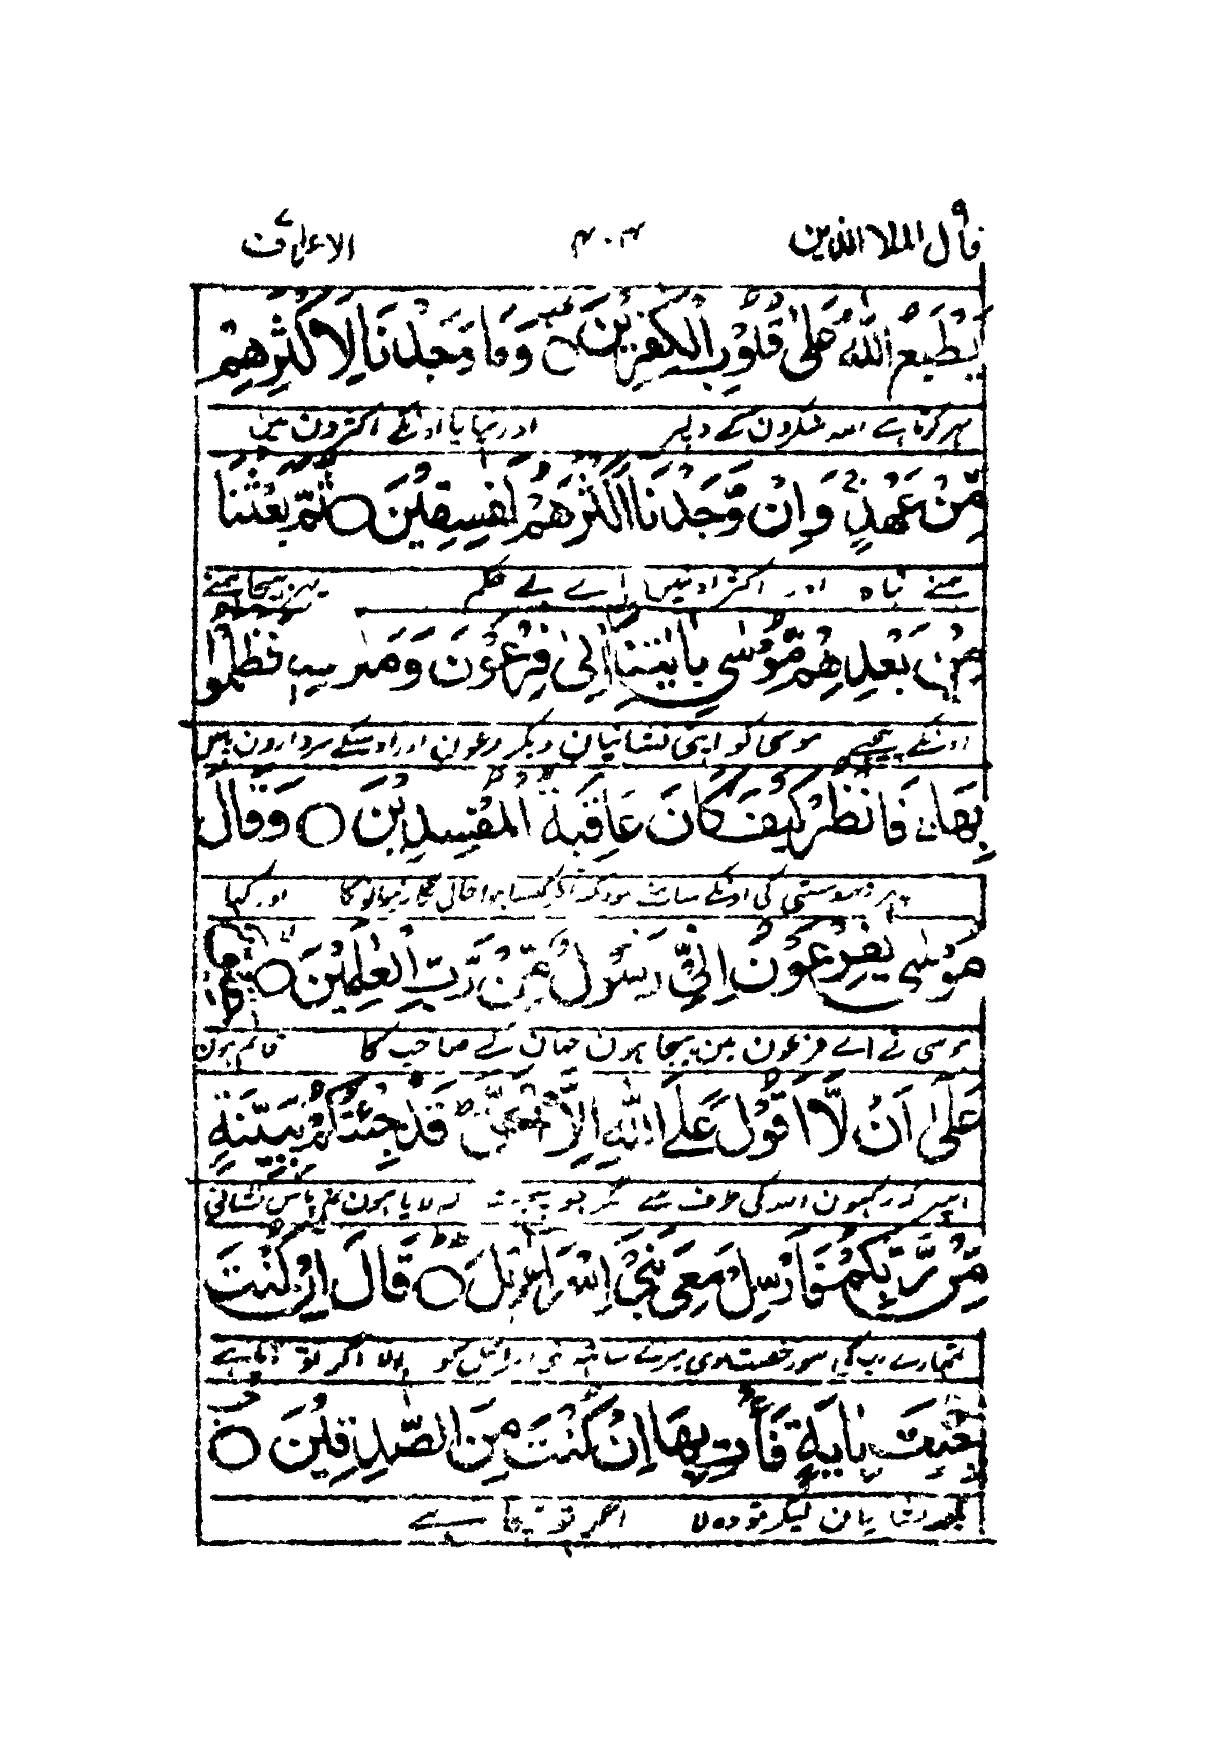 قال الملا الذين ٩ ٣٠٣ الاعراف ٧
يَطْبَعُ اللّٰهُ عَلٰى قُلُوْبِ الْكٰفِرِيْنَ وَمَا وَجَدْنَا لِاَكْثَرِهِمْ
مہر کرتا ہے اللہ منکرون کے دلپر اور نپایا اونکے اکثرون مین
مِّنْ عَهْدٍ وَاِنْ وَّجَدْنَا اَكْثَرَهُمْ لَفٰسِقِيْنَ ○ ثُمَّ بَعَثْنَا
ہمنے نباہ اور اکثر اونمین پائے بے حکم پہر بہیجا ہمنے
مِنْ بَعْدِهِمْ مُّوْسٰى بِاٰيٰتِنَا اِلٰى فِرْعَوْنَ وَمَلَا۟ئِهٖ فَظَلَمُوْا
اونکے پیچہے موسی کو اپنی نشانیان دیکر فرعون اور اوسکے سردارون پاس
بِهَا فَانْظُرْ كَيْفَ كَانَ عَاقِبَةُ الْمُفْسِدِيْنَ ○ وَقَالَ
پہر زبردستی کی اونکے سامنے سو دیکہہ آخر کیسا ہوا حال بگاڑنیوالونکا اور کہا
مُوْسٰى يٰفِرْعَوْنُ اِنِّيْ رَسُوْلٌ مِّنْ رَّبِّ الْعٰلَمِيْنَ ○
موسی نے اے فرعون مین بہیجا ہون جہان کے صاحب کا قائم ہون
عَلٰى اَنْ لَّا اَقُوْلَ عَلَى اللّٰهِ اِلَّا الْحَقَّ قَدْ جِئْتُكُمْ بِبَيِّنَةٍ
اسپر کہ نکہون اللہ کی طرف سے مگر جو سچ ہے کہ لایا ہون تم پاس نشانی
مِّنْ رَّبِّكُمْ فَاَرْسِلْ مَعِيَ بَنِيْ اِسْرَآءِيْلَ ○ قَالَ اِنْ كُنْتَ
تمہارے رب کی سو رخصت دے میرے ساتہہ بنی اسرائیل کو بولا اگر تو آیا ہے
جِئْتَ بِاٰيَةٍ فَأْتِ بِهَا اِنْ كُنْتَ مِنَ الصّٰدِقِيْنَ ○
کچہہ نشان لیکر تو وہ لا اگر تو سچا ہے